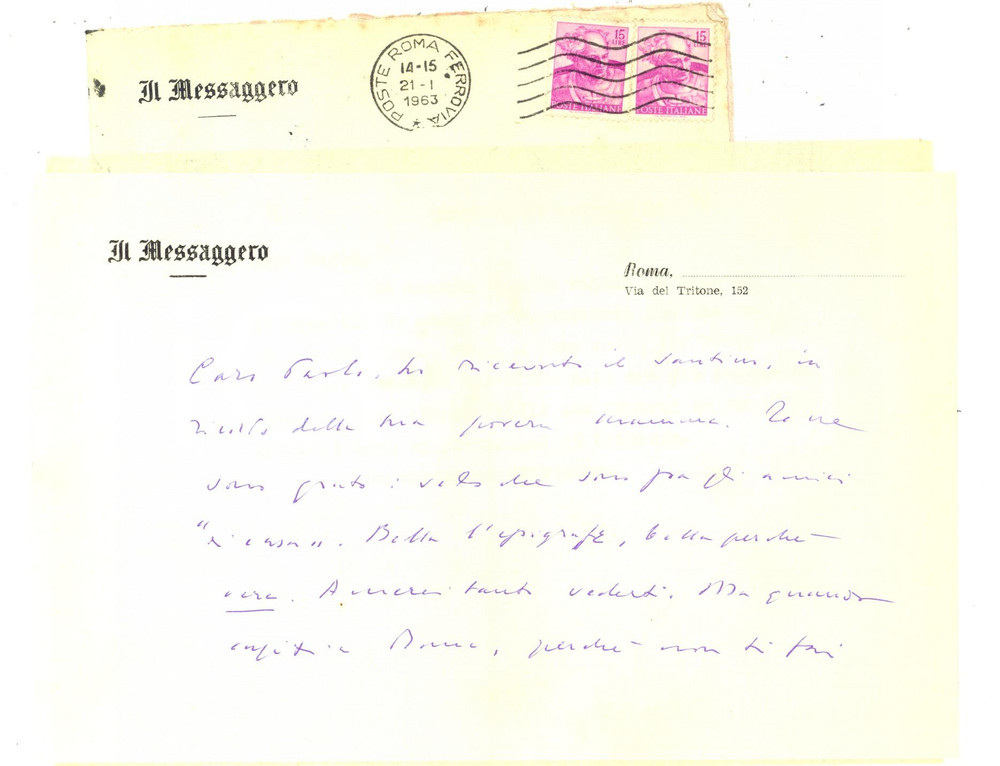 Il Messaggero
POSTE ROMA FERROVIA
14-15
21-1
1963
15
LIRE
15
LIRE
POSTE ITALIANE
POSTE ITALIANE
Il Messaggero
Roma,
Via del Tritone, 152
Caro Paolo, ho ricevuto il santino, in
ricordo della tua povera mamma. Te ne
sono grato: vedo che sono fra gli amici
"di casa". Bella l'epigrafe, bella perchè
vera. Amerei tanto vederti. Ma quando
capiti a Roma, perchè non ti fai